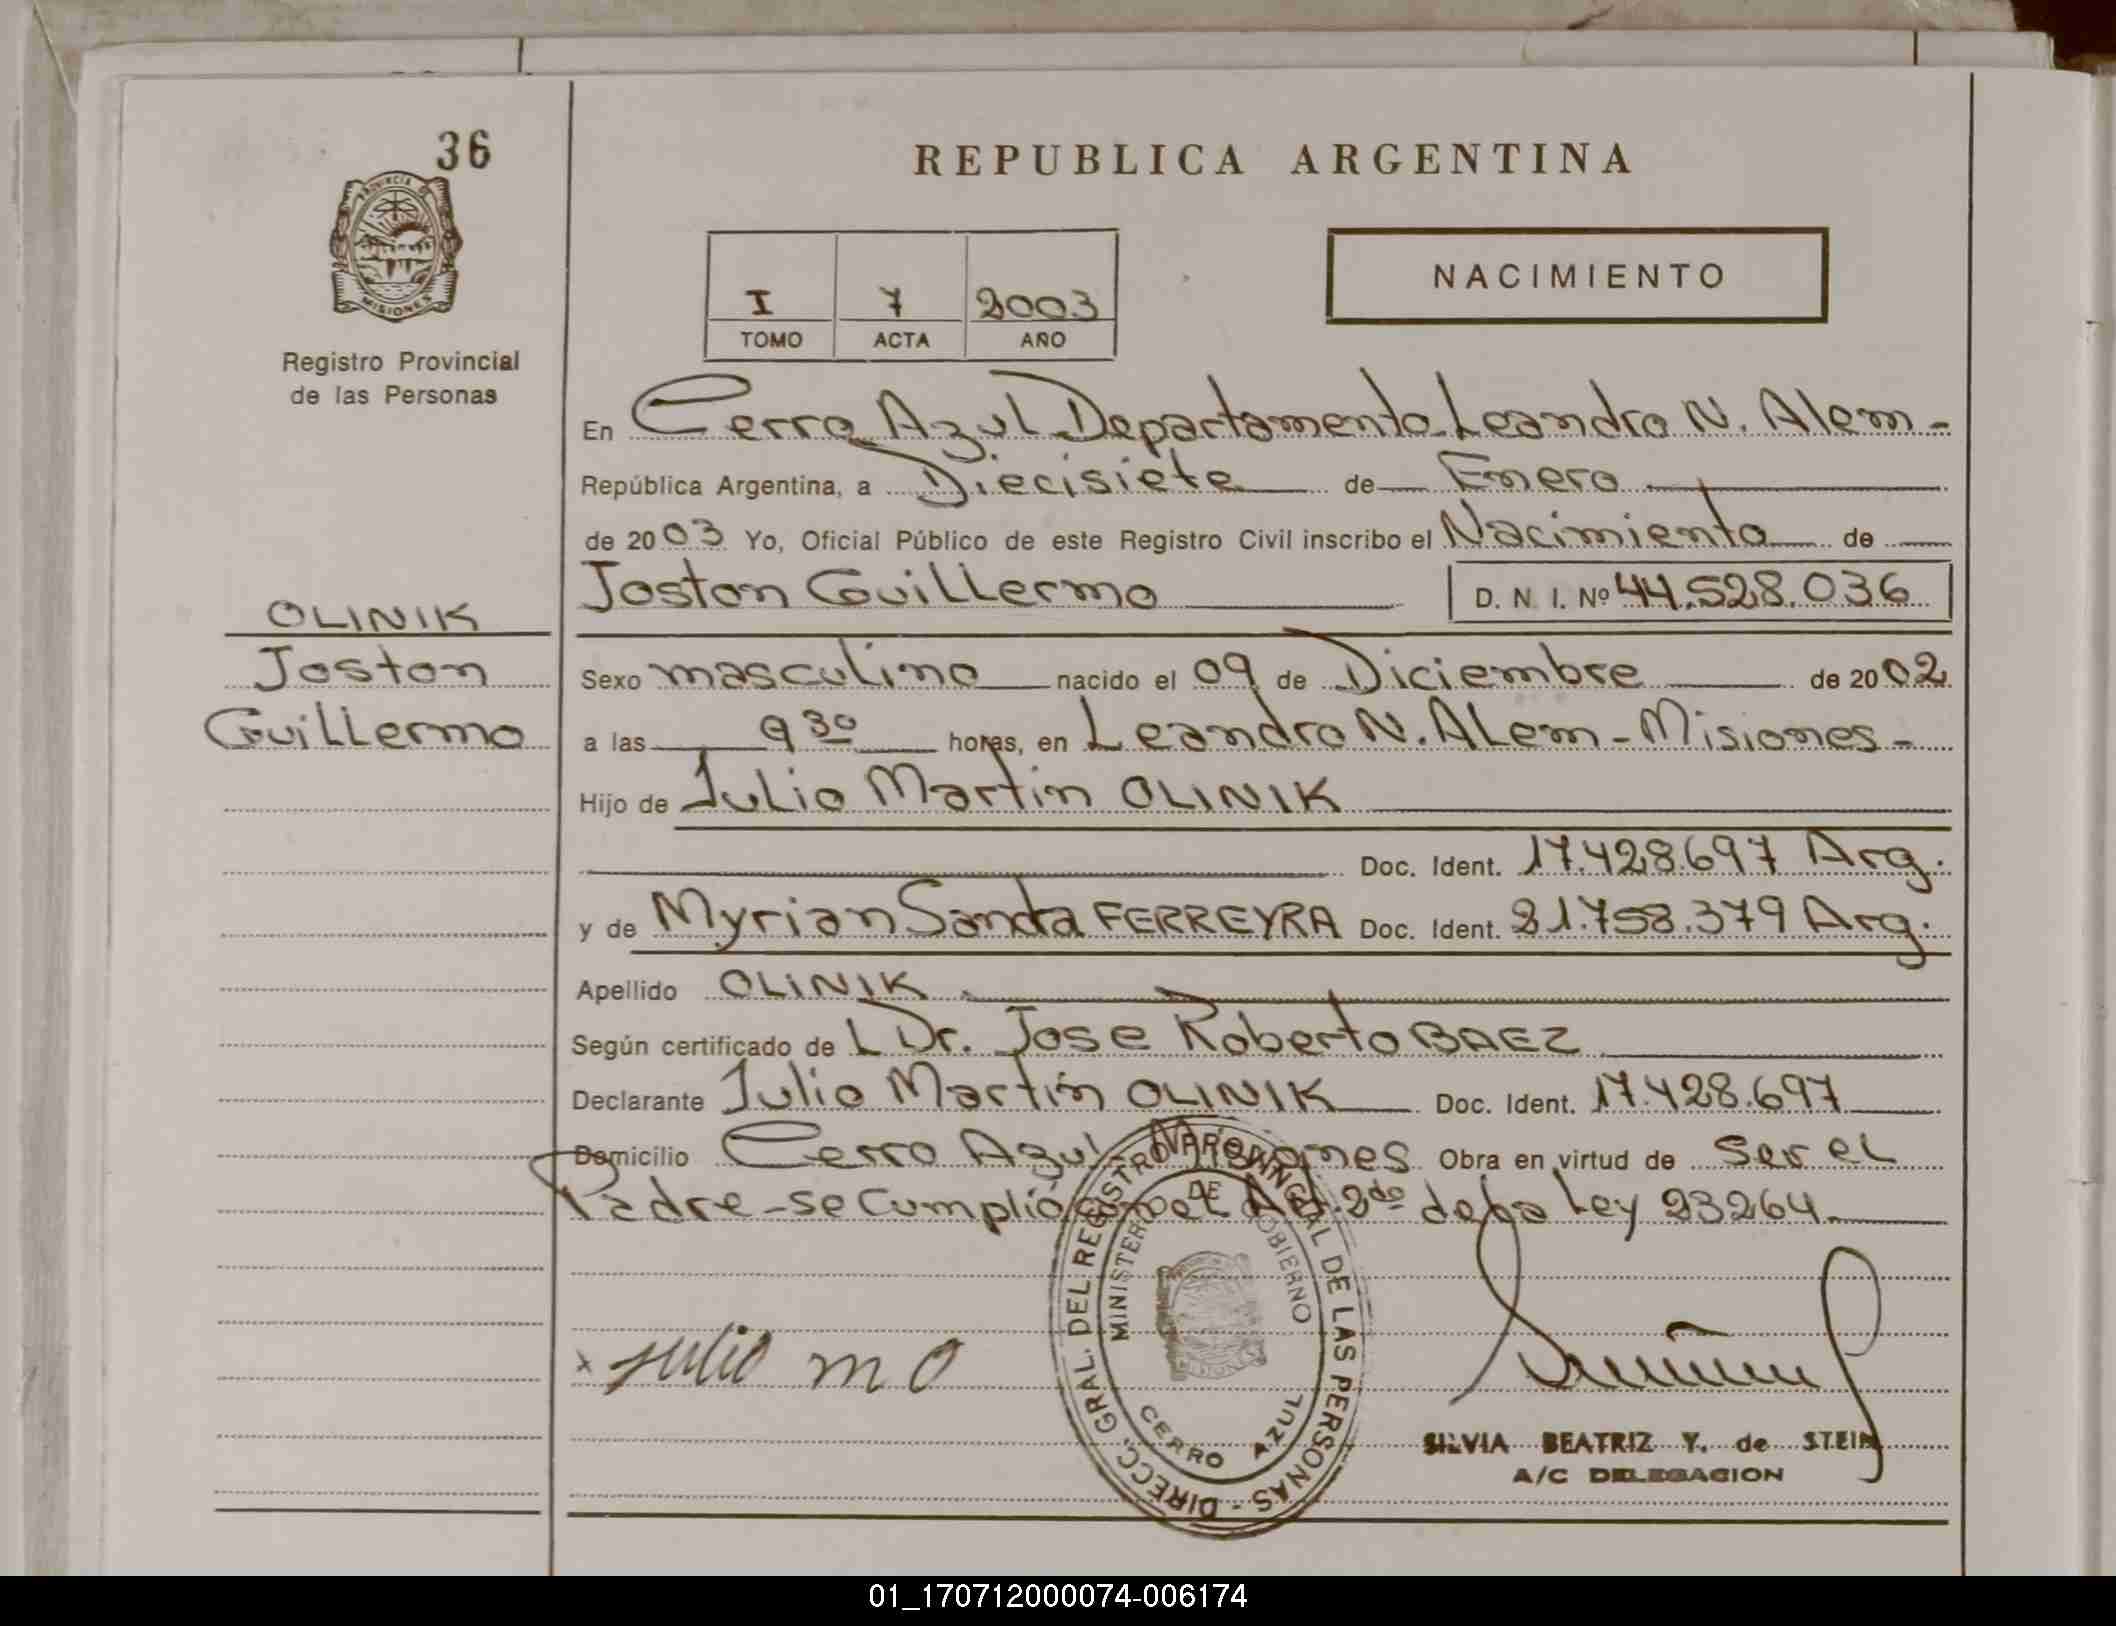 36
REPUBLICA ARGENTINA
PROVINCIA DE
MISIONES
Registro Provincial
de las Personas
I 7 2003
TOMO ACTA AÑO
NACIMIENTO
En Cerro Azul Departamento Leandro N. Alem-
República Argentina, a Diecisiete de Enero
de 2003 Yo, Oficial Público de este Registro Civil inscribo el Nacimiento de
Joston Guillermo D. N. I. Nº 44.528.036
OLINIK
Joston
Guillermo
Sexo masculino nacido el 09 de Diciembre de 2002
a las 9 30 horas, en Leandro N. Alem - Misiones -
Hijo de Julio Martin OLINIK
Doc. Ident. 17.428.697 Arg.
y de Myrian Sandra FERREYRA Doc. Ident. 21.758.379 Arg.
Apellido OLINIK
Según certificado de L Dr. Jose Roberto BAEZ
Declarante Julio Martin OLINIK Doc. Ident. 17.428.697
Domicilio Cerro Azul Misiones Obra en virtud de Ser el
Padre - se cumplió con el Art. 2do de la Ley 23264
x Julio m O
DIRECC. GRAL. DEL REGISTRO PROVINCIAL DE LAS PERSONAS -
MINISTERIO DE GOBIERNO
CERRO AZUL
SILVIA BEATRIZ Y. de STEIN
A/C DELEGACION
01_170712000074-006174